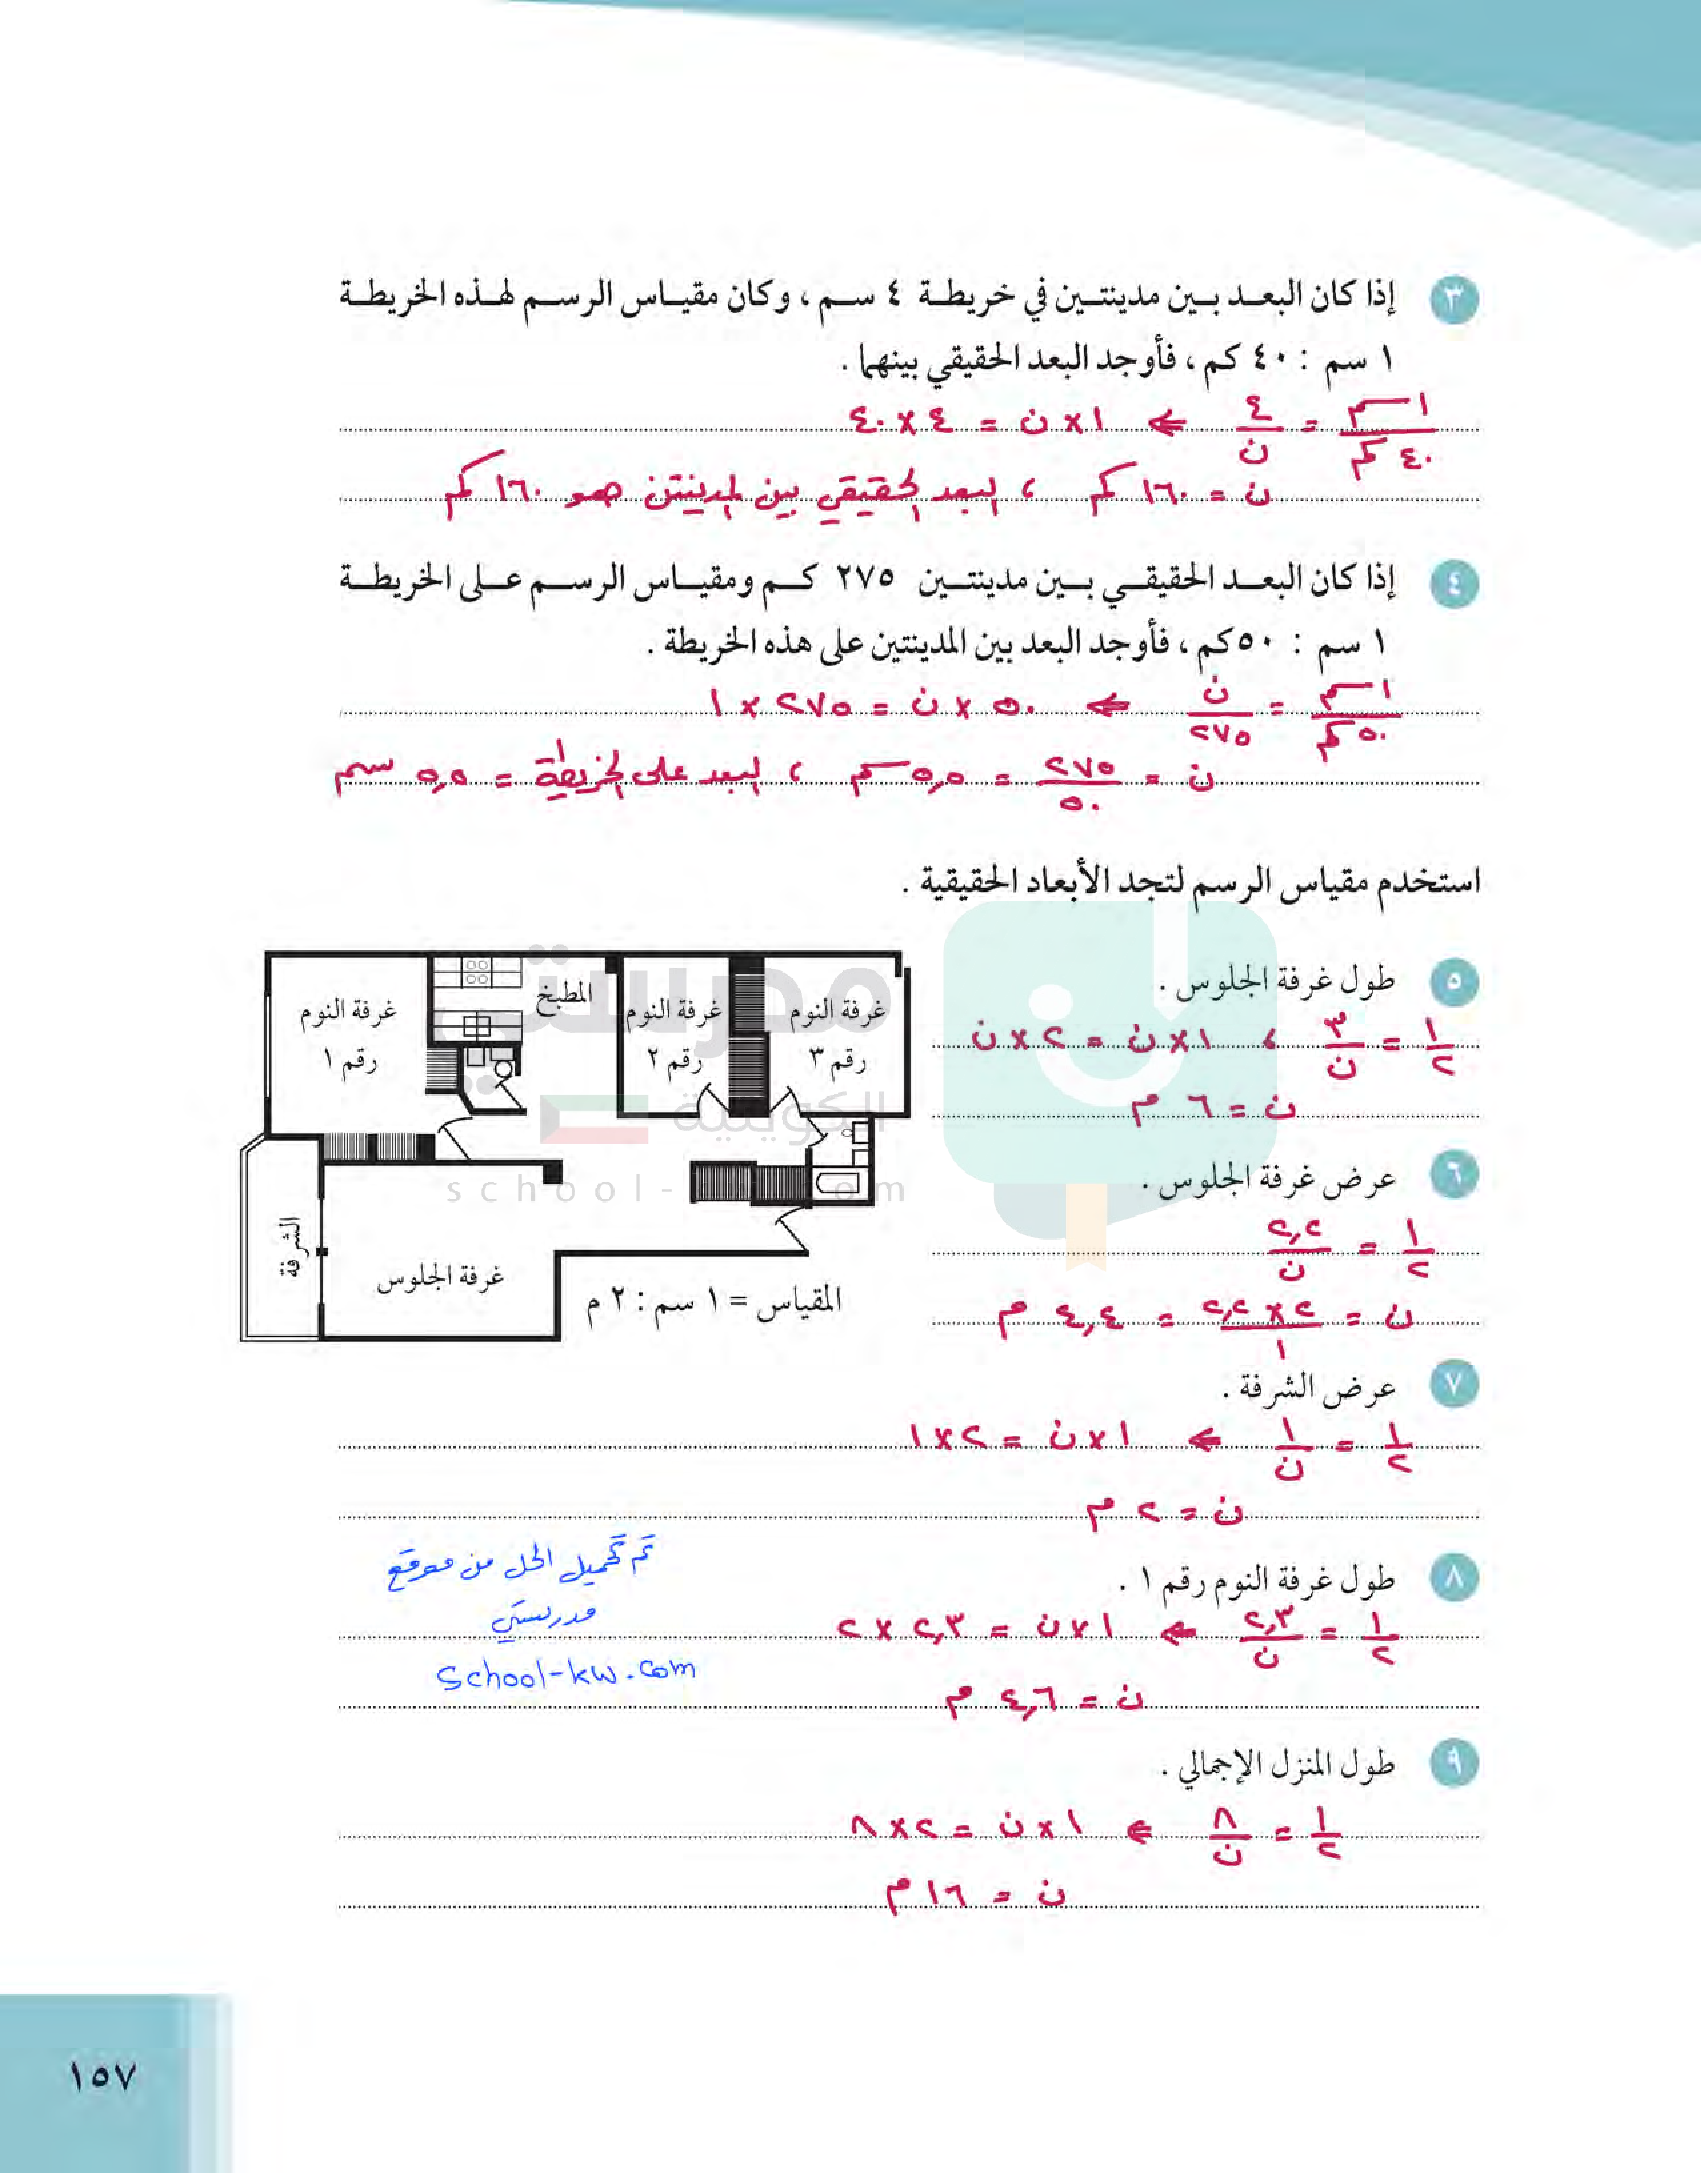 ٣ إذا كان البعـد بـين مدينتـين في خريطـة ٤ سـم ، وكان مقيـاس الرسـم لهـذه الخريطـة
١ سم : ٤٠ كم ، فأوجد البعد الحقيقي بينهما .
١ سم / ٤٠ كم = ٤ / ن ⇐ ١ × ن = ٤ × ٤٠
ن = ١٦٠ كم ، البعد الحقيقي بين المدينتن هو ١٦٠ كم
٤ إذا كان البعـد الحقيقـي بـين مدينتـين ٢٧٥ كـم ومقيـاس الرسـم عـلى الخريطـة
١ سم : ٥٠ كم ، فأوجد البعد بين المدينتين على هذه الخريطة .
١ سم / ٥٠ كم = ن / ٢٧٥ ⇐ ٥٠ × ن = ٢٧٥ × ١
ن = ٢٧٥ / ٥٠ = ٥,٥ سم ، البعد على الخريطة = ٥,٥ سم
استخدم مقياس الرسم لتجد الأبعاد الحقيقية .
٥ طول غرفة الجلوس .
١ / ٢ = ٣ / ن ، ١ × ن = ٢ × ن
ن = ٦ م
٦ عرض غرفة الجلوس .
١ / ٢ = ٢,٢ / ن
ن = ٢ × ٢,٢ / ١ = ٤,٤ م
غرفة النوم رقم ٣
غرفة النوم رقم ٢
المطبخ
غرفة النوم رقم ١
الشرفة
غرفة الجلوس
المقياس = ١ سم : ٢ م
مدرستي
الكويتية
٧ عرض الشرفة .
١ / ٢ = ١ / ن ⇐ ١ × ن = ٢ × ١
ن = ٢ م
٨ طول غرفة النوم رقم ١ .
١ / ٢ = ٢,٣ / ن ⇐ ١ × ن = ٢,٣ × ٢
ن = ٤,٦ م
تم تحميل الحل من موقع
مدرستي
school-kw.com
٩ طول المنزل الإجمالي .
١ / ٢ = ٨ / ن ⇐ ١ × ن = ٢ × ٨
ن = ١٦ م
١٥٧